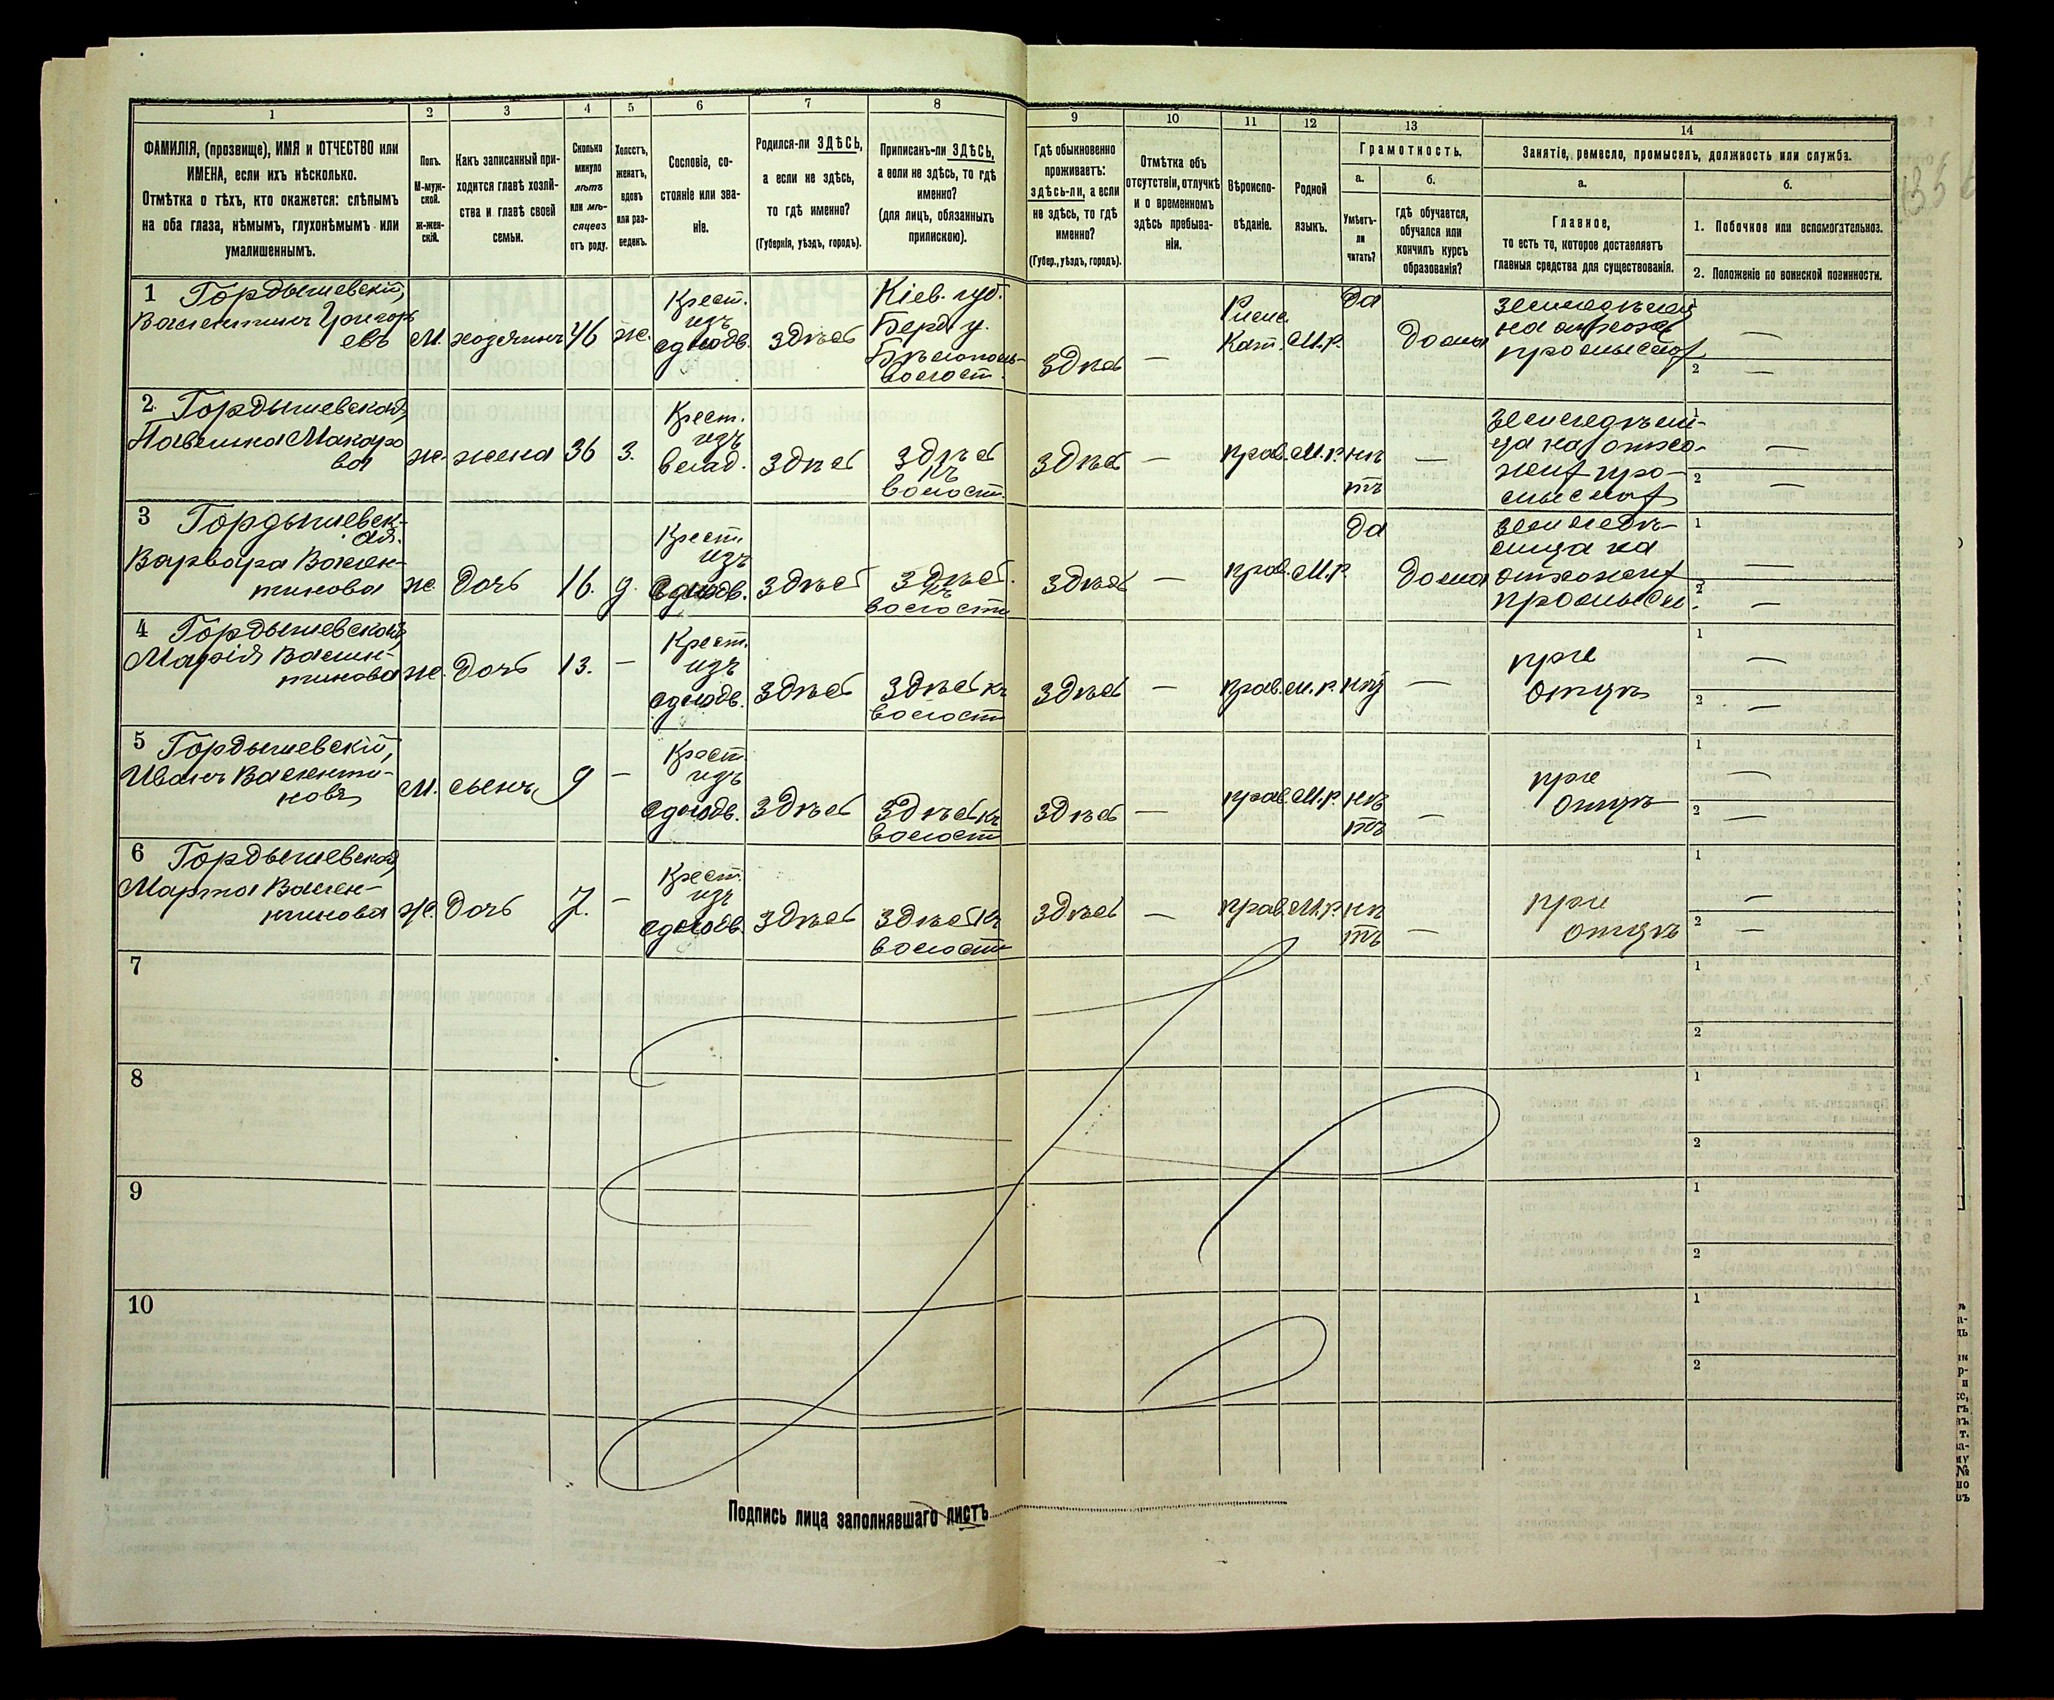 1
2
3
4
5
6
7
8
ФАМИЛІЯ, (прозвище), ИМЯ и ОТЧЕСТВО или
ИМЕНА, если ихъ нѣсколько.
Отмѣтка о тѣхъ, кто окажется: слѣпымъ
на оба глаза, нѣмымъ, глухонѣмымъ или
умалишеннымъ.
Полъ.
М-муж-
ской.
ж-жен-
скій.
Какъ записанный при-
ходится главѣ хозяй-
ства и главѣ своей
семьи.
Сколько
минуло
лѣтъ
или мѣ-
сяцевъ
отъ роду.
Холостъ,
женатъ,
вдовъ
или раз-
веденъ.
Сословіе, со-
стояніе или зва-
ніе.
Родился-ли ЗДѢСЬ,
а если не здѣсь,
то гдѣ именно?
(Губернія, уѣздъ, городъ).
Приписанъ-ли ЗДѢСЬ,
а если не здѣсь, то гдѣ
именно?
(для лицъ, обязанныхъ
припискою).
9
10
11
12
13
14
Гдѣ обыкновенно
проживаетъ:
здѣсь-ли, а если
не здѣсь, то гдѣ
именно?
(Губер., уѣздъ, городъ).
Отмѣтка объ
отсутствіи, отлучкѣ
и о временномъ
здѣсь пребыва-
ніи.
Вѣроиспо-
вѣданіе.
Родной
языкъ.
Грамотность.
а.
Умѣетъ-
ли
читать?
б.
гдѣ обучается,
обучался или
кончилъ курсъ
образованія?
Занятіе, ремесло, промыселъ, должность или служба.
а.
Главное,
то есть то, которое доставляетъ
главныя средства для существованія.
б.
1. Побочное или вспомогательное.
2. Положеніе по воинской повинности.
1 Гордышевскій,
Валентинъ Григорь
евъ
м.
хозяинъ
46
ж.
Крест.
изъ
однодв.
здѣсь
Кіев. губ.
Берд. у.
Бѣлополь-
волост.
здѣсь
—
Римс.
Кат.
М.р.
Да
Дома
на отхожѣ
1
—
2
—
2 Гордышевская,
Павлина Макаро
ва
ж.
жена
36
з.
Крест.
изъ
здѣсь
здѣсь
къ
волост.
здѣсь
—
прав.
М.р.
нѣ
тъ
—
1
—
2
—
3 Гордышевск-
ая.
Варвара Вален-
тинова
ж.
Дочь
16.
д.
Крест.
изъ
однодв.
здѣсь
здѣсь
къ
волости
здѣсь
—
прав.
М.р.
Да
Дома
1
—
2
—
4 Гордышевская,
Марія Вален-
тинова
ж.
Дочь
13.
—
Крест.
изъ
однодв.
здѣсь
здѣсь къ
волости
здѣсь
—
прав.
м.р.
—
при
отцѣ
1
—
2
—
5 Гордышевскій,
Иванъ Валенти-
новъ
м.
сынъ
9
—
Крест.
изъ
однодв.
здѣсь
здѣсь къ
волости
здѣсь
—
прав.
М.р.
нѣ
тъ
—
при
отцѣ
1
—
2
—
6 Гордышевская,
Марта Вален-
тинова
ж.
Дочь
7.
—
Крест.
изъ
однодв.
здѣсь
здѣсь къ
волости
здѣсь
—
прав.
М.р.
нѣ
тъ
—
при
отцѣ
1
—
2
—
7
1
2
8
1
2
9
1
2
10
1
2
Подпись лица заполнявшаго листъ